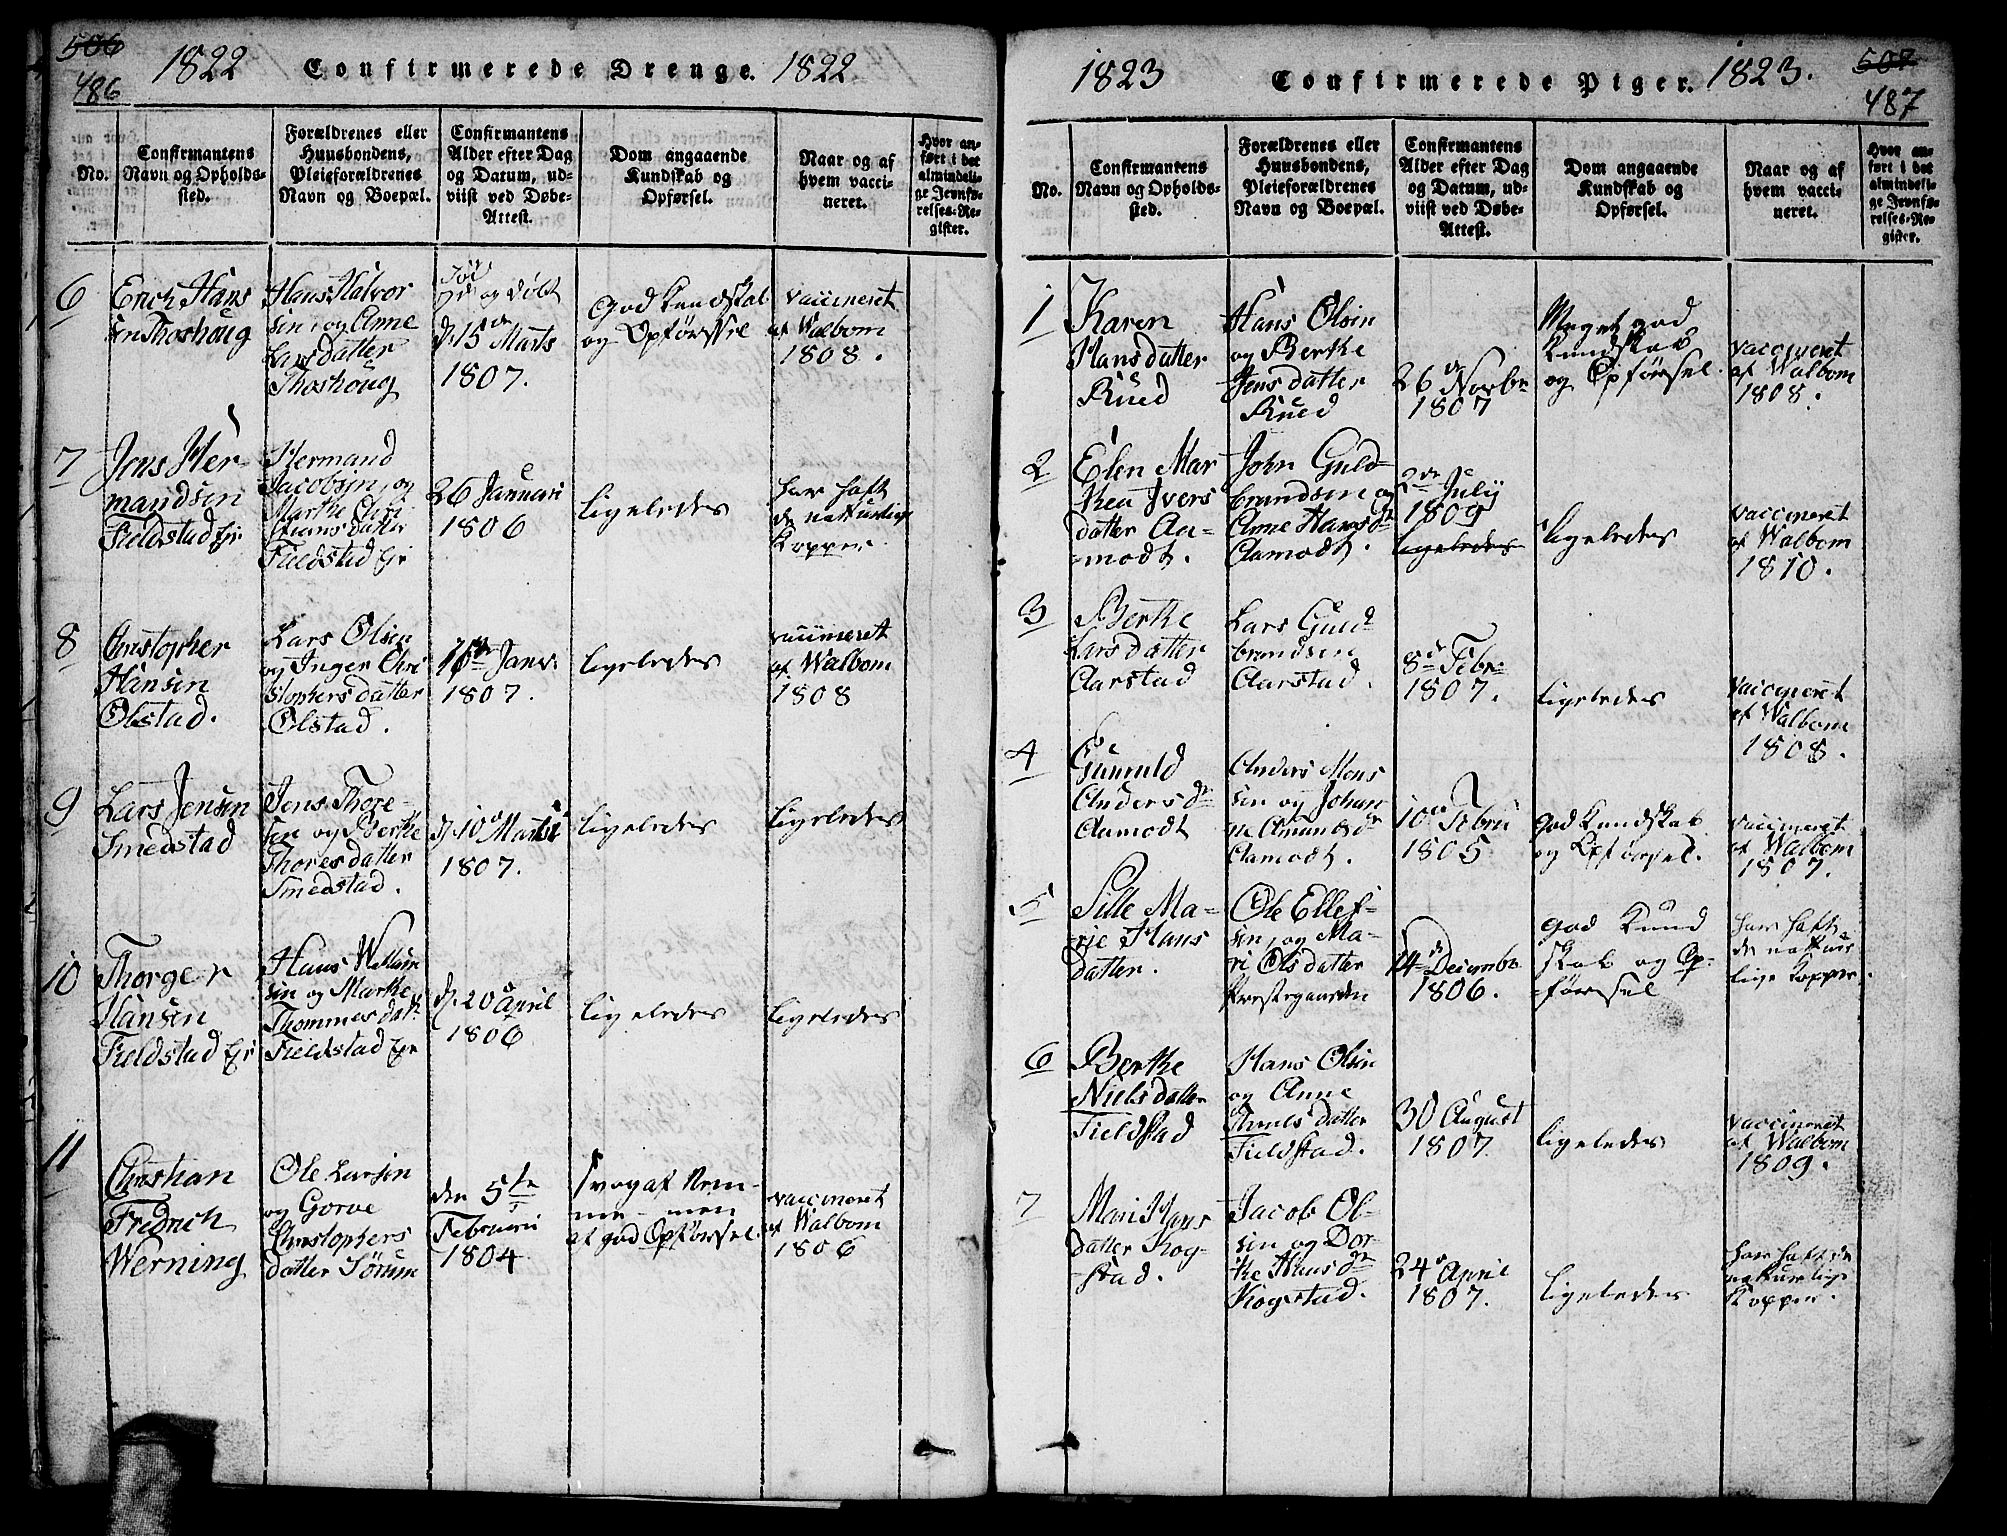 506
486
1822 Confirmerede Drenge. 1822
No.
Confirmantens
Navn og Opholds-
sted.
Forældrenes eller
Huusbondens,
Pleieforældrenes
Navn og Boepæl.
Confirmantens
Alder efter Dag
og Datum, ud-
viist ved Døbe-
Attest.
Dom angaaende
Kundskab og
Opførsel.
Naar og af
hvem vacci-
neret.
Hvor an-
ført i det
almindeli-
ge Jevnfø-
relses-Re-
gister.
6
Erich Hans
sen Thoshoug
Hans Halvor
sen, og Anne
Larsdatter
Thoshoug
Fød
og døbt
d. 15 Marts
1807.
God Kundskab
og Opførssel
vaccineret
af Walbom
1808.
7
Jens Her-
mandsen
Fieldstad Eje
Hermand
Jacobsen, og
Marthe Chri
stians datter
Fieldstad Eje
26 Januari
1806
ligeledes
har haft
de naturlige
Kopper
8
Christopher
Hansen
Olstad.
Lars Olsen
og Inger Chri
stophers datter
Olstad.
16de Janv.
1807.
ligeledes
vaccineret
af Walbom
1808
9
Lars Jensen
Smedstad
Jens Thore-
sen og Berthe
Thoresdatter
Smedstad.
d. 10 Martsi
1807.
ligeledes
ligeledes
10
Thorger
Hansen
Fieldstad Eje
Hans
sen og Marthe
Thommesdatr
Fieldstad Eje
d. 20 April
1806
ligeledes
ligeledes
11
Christian
Fredrich
Werning
Ole Larsen
og Gorve
Christophers
datter Sørum
den 5te
Februari
1804
svag af Nem-
me - men
af god Opførsel
vaccineret
af Walbom
1806
1823 Confirmerede Piger. 1823.
507
487
No.
Confirmantens
Navn og Opholds-
sted.
Forældrenes eller
Huusbondens,
Pleieforældrenes
Navn og Boepæl.
Confirmantens
Alder efter Dag
og Datum, ud-
viist ved Døbe-
Attest.
Dom angaaende
Kundskab og
Opførsel.
Naar og af
hvem vacci-
neret.
Hvor an-
ført i det
almindeli-
ge Jevnfø-
relses-Re-
gister.
1
Karen
Hansdatter
Rued
Hans Olsen
og Berthe
Jens datter
Rued
26 Novbr
1807
Meget god
Kundskab
og Opførsel
vaccineret
af Walbom
1808.
2
Elen Mar
thea Ivers
datter Aa-
-modt.
John Guld-
brandsen og
Anne Hansdr
Aamodt.
2de July
1809
ligeledes
ligeledes
vaccineret
af Walbom
1810.
3
Berthe
Larsdatter
Aarstad
Lars Guld-
brandsen
Aarstad.
8de Febr.
1807.
ligeledes
vaccineret
af Walbom
1808.
4
Gunuld
Andersdr
Aamodt
Anders Mons
sen og Johan
ne Amundsdr
Aamodt.
10 Febru
1805
god Kundskab
og Opførsel.
vaccineret
af Walbom
1807.
5
Sille Ma-
rie Hans
datter.
Ole Ellef-
sen, og Ma-
ri Olsdatter
Præstegaarden
14 Decembr
1806.
god Kund
skab og Op-
-førsel
har haft
de natur
lige Kopper.
6
Berthe
Nielsdatter
Fieldstad
Hans Olsen
og Anne
datter
Fieldstad.
30 August
1807
ligeledes
vaccineret
af Walbom
1809.
7
Mari Hans
datter Kog-
-stad.
Jacob Ol-
sen og Dor-
the Hansdr
Kogstad.
24 April
1807.
ligeledes
har haft de
naturlige
Kopper.